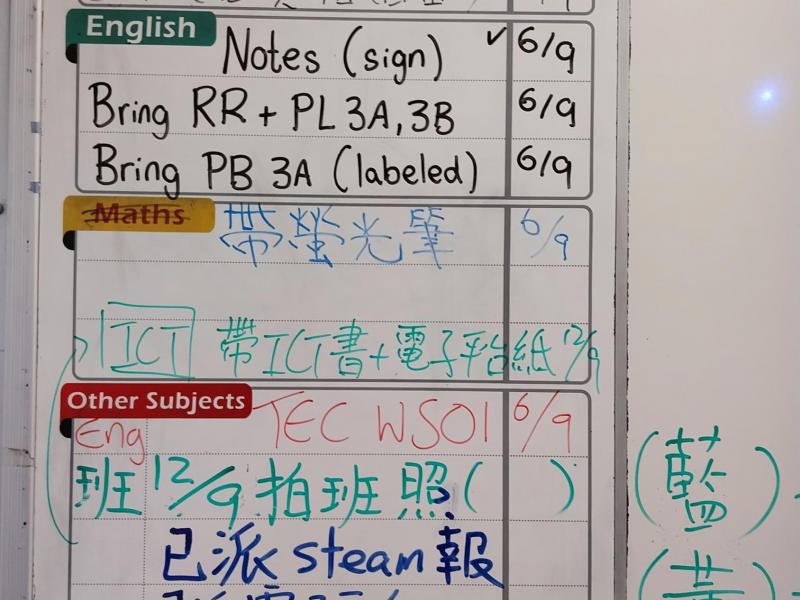 English
Notes (sign) ✓ 6/9
Bring RR + PL 3A, 3B 6/9
Bring PB 3A (labeled) 6/9
Maths
帶螢光筆 6/9
ICT 帶ICT書+電子平台紙 12/9
Other Subjects
Eng TEC WS01 6/9
班 12/9 拍班照( )
(藍)
已派 steam 報
(黃